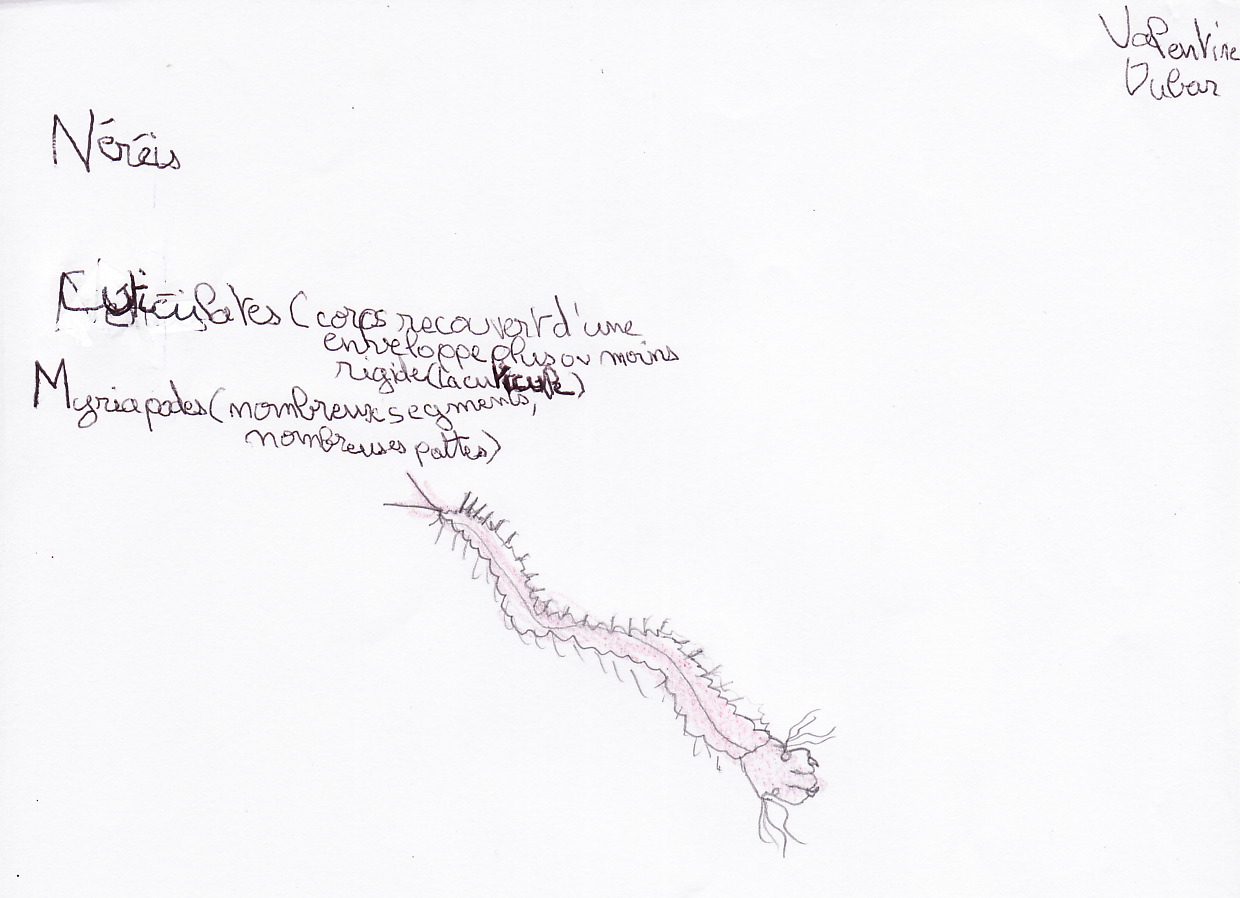 Valentine
Dubar
Néréis
Cuticulates (corps recouvert d'une
enveloppe plus ou moins
rigide (la cuticule)
Myriapodes (nombreux segments,
nombreuses pattes)